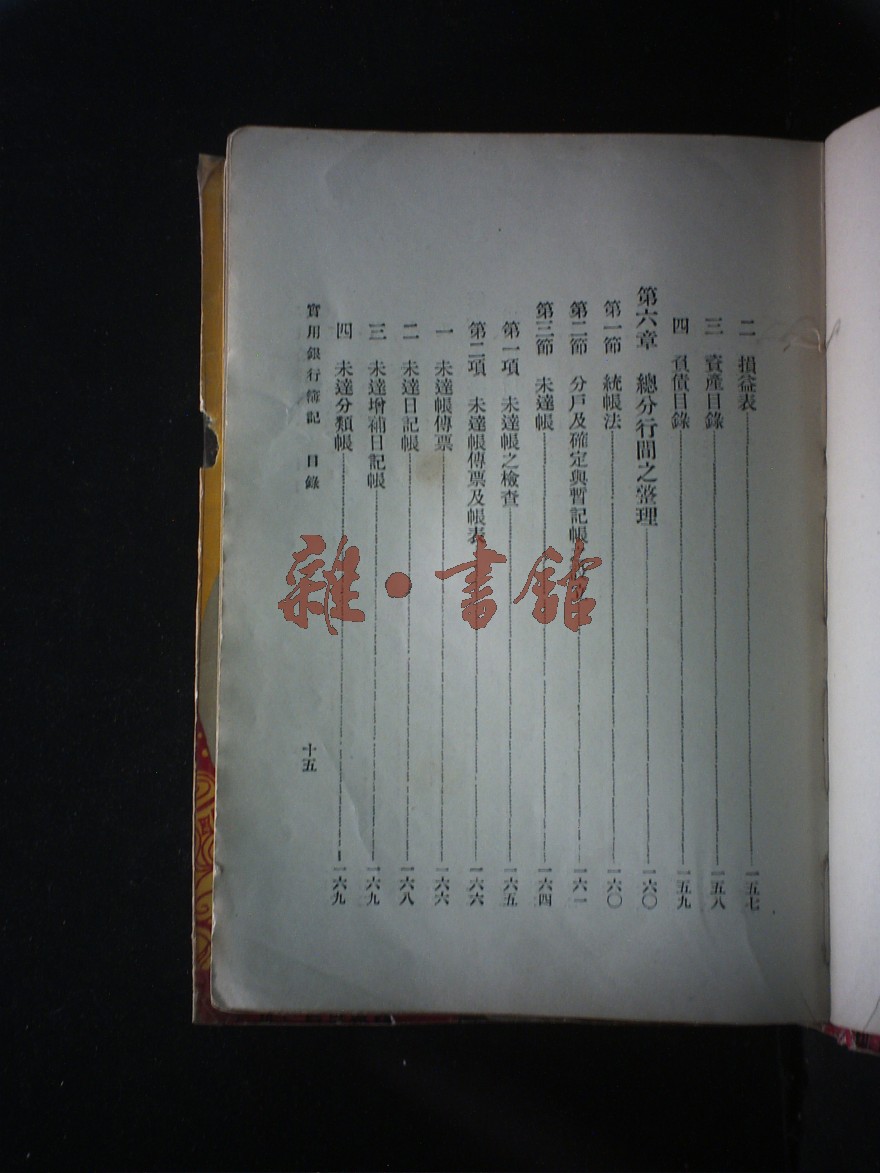 二　損益表　一五七
三　資產目錄　一五八
四　負債目錄　一五九
第六章　總分行間之整理　一六〇
第一節　統帳法　一六〇
第二節　分戶及確定與暫記帳　一六一
第三節　未達帳　一六四
第一項　未達帳之檢查　一六五
第二項　未達帳傳票及帳表　一六六
一　未達帳傳票　一六六
二　未達日記帳　一六八
三　未達增補日記帳　一六九
四　未達分類帳　一六九
實用銀行簿記　目錄　十五
雜·書館